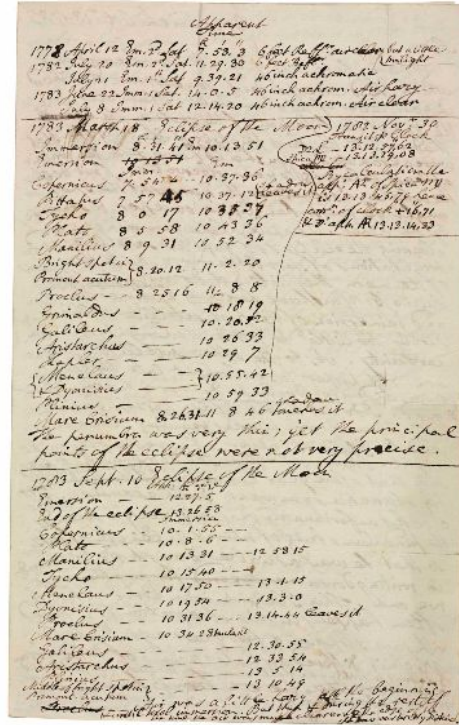 Apparent
Time
1778 April 12 Em. 2d Sat 9.53.3 6 feet Reff. air clear but a little
twilight
1782 July 20 Em. 2d Sat. 11.29.30 6 feet Reff
July 21 Em. 1st Sat 9.39.21 46 inch achromatic
1783 June 22 Imm. 1. Sat. 14-0-5 46 inch achrom. Air hazy
July 8 Imm. 1 Sat 12-14-20 46 inch achrom. Air clear
1783 March 18 Eclipse of the Moon
Immersion 8.31.41 Em 10.13.51
Emersion
Imm Em
Copernicus 7 54 10-37-36
Pittatus 7 57 45 10-37-12
leaves it
Tycho 8 0 17 10 33 37
Plato 8 5 58 10 43 36
Manilius 8 9 31 10 52 34
Bright spot in
Promont acutum 8.20.12 11-2-20
Proclus - - 8 25 16 11 8 8
Grimaldus 10 18 19
Galileus 10-20
Aristarchus 10 26 33
Kepler 10 29 7
Menelaus
& Dyonisius 10.55.42
Plinius 10 59 33
Mare Crisium 8.26.31 11 8 46 leaves it
The penumbra was very thin; yet the principal
points of the eclipse were not very precise.
1782 Nov. 30
Transit p Clock
13.12.29.08
By calculation the
app. AR of Spica
is 13-13-45,79
corr. of Clock + 16,71
app AR 13-13-14,33
1783 Sept. 10 Eclipse of the Moon
Emersion - 12.27.5
End of the eclipse 13.26.58
Immersion
Copernicus - - 10-1-55 - -
Plato - - 10-8-6 - -
Manilius - - 10 13 31 - - 12 58 15
Tycho - - 10 15 40 - -
Menelaus - - 10 17 50 - - 13-1-15
Dyonisius - - 10 19 54 - - 13-3-0
Proclus - - 10 31 36 - - 13.14.44 leaves it
Mare Crisium 10 34 28
Galileus - - 12-30-55
Aristarchus - - 12 33 54
Plinius - - 13 5 14
Middle of bright spot in
Promont. acutum 13 10 49
was a little hazy at the beginning